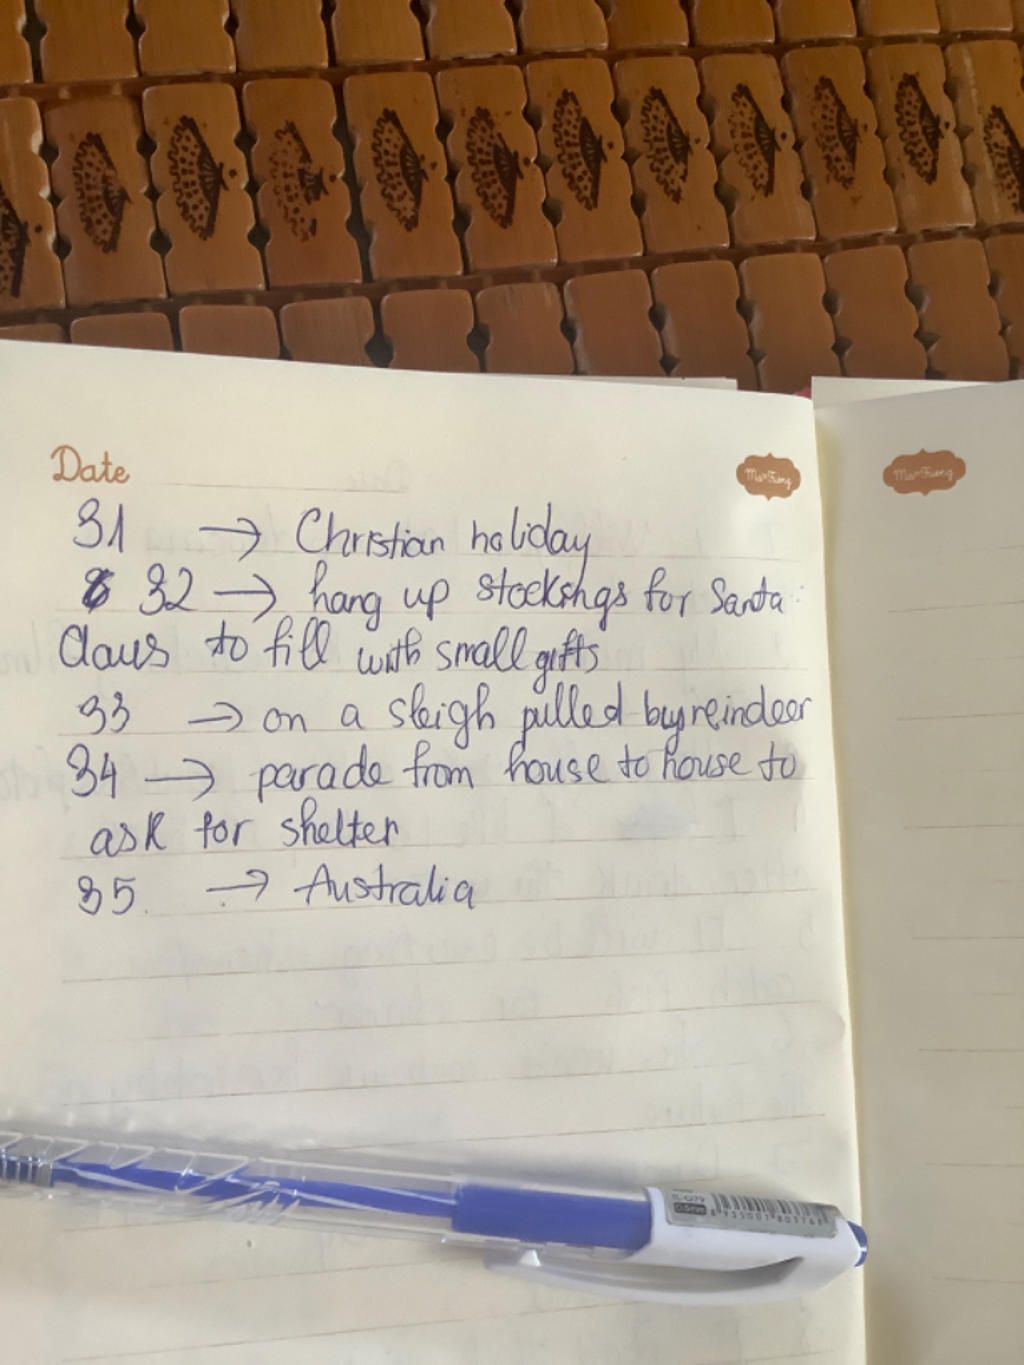 Date
31 → Christian holiday
32 → hang up stocksngs for Santa
Claus to fill with small gifts
33 → on a sleigh pulled by reindeer
34 → parade from house to house to
ask for shelter
35. → Australia
0.5mm